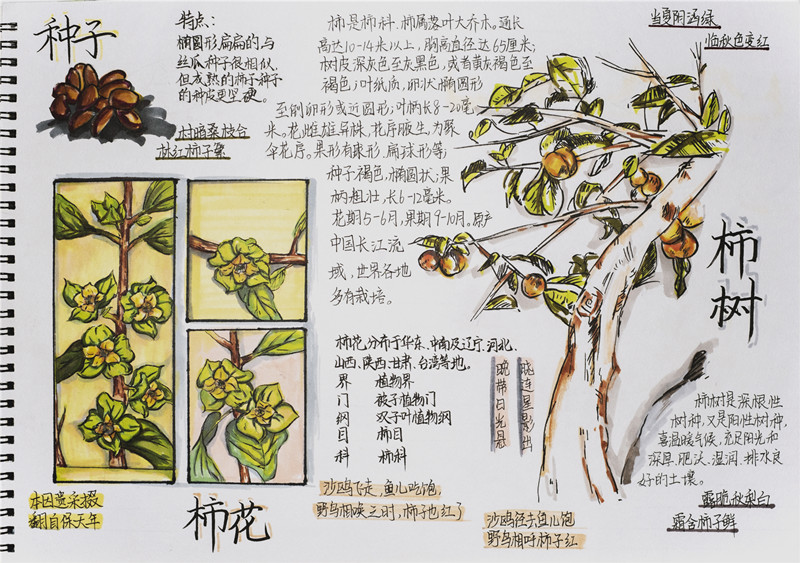 种子
特点:
椭圆形扁扁的,与
丝瓜种子很相似,
但成熟的柿子种子
的种皮更坚硬。
村暗桑枝合
林红柿子繁
柿是柿科、柿属落叶大乔木。通长
高达10-14米以上,胸高直径达65厘米;
树皮深灰色至灰黑色,或者黄灰褐色至
褐色;叶纸质,卵状椭圆形
至倒卵形或近圆形;叶柄长8-20毫
米。花雌雄异株,花序腋生,为聚
伞花序。果形有球形,扁球形等;
种子褐色,椭圆状;果
柄粗壮,长6-12毫米。
花期5-6月,果期9-10月。原产
中国长江流
域,世界各地
多有栽培。
当夏阴涵绿
临秋色变红
柿树
柿花分布于华东、中南及辽宁、河北、
山西、陕西、甘肃、台湾等地。
界 植物界
门 被子植物门
纲 双子叶植物纲
目 柿目
科 柿科
晓连星影出
晚带日光悬
柿树是深根性
树种,又是阳性树种,
喜温暖气候,充足阳光和
深厚、肥沃、湿润、排水良
好的土壤。
露脆秋梨白
霜含柿子鲜
本因遗采掇
翻自保天年
柿花
沙鸥飞走,鱼儿吃饱,
野鸟相唤之时,柿子也红了
沙鸥径去鱼儿饱
野鸟相呼柿子红